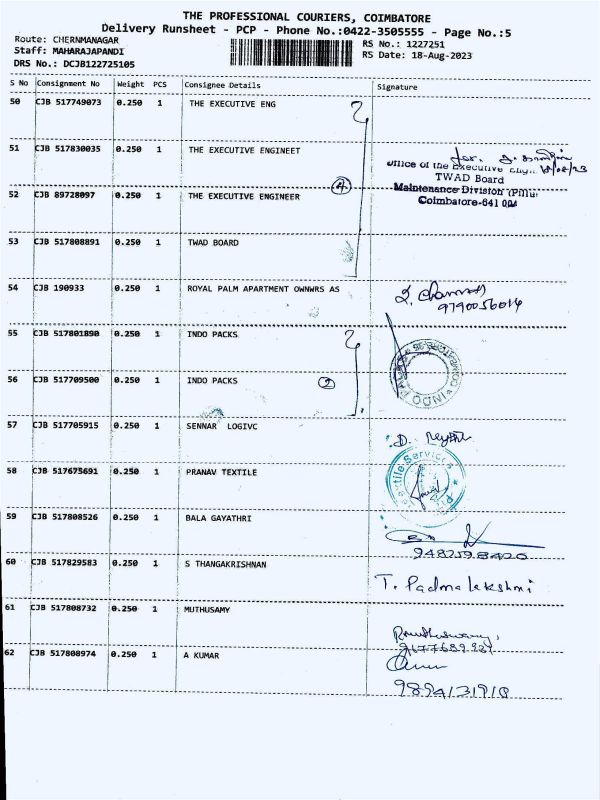 THE PROFESSIONAL COURIERS, COIMBATORE
Delivery Runsheet - PCP - Phone No.:0422-3505555 - Page No.:5
Route: CHERNMANAGAR
RS No.: 1227251
Staff: MAHARAJAPANDI
RS Date: 18-Aug-2023
DRS No.: DCJB122725105
S No Consignment No Weight PCS Consignee Details Signature
50 CJB 517749073 0.250 1 THE EXECUTIVE ENG
51 CJB 517830035 0.250 1 THE EXECUTIVE ENGINEET
Office of the Executive
18/08/23
TWAD Board
52 CJB 89728097 0.250 1 THE EXECUTIVE ENGINEER
4
Maintenance Division
Coimbatore-641 004
53 CJB 517808891 0.250 1 TWAD BOARD
54 CJB 190933 0.250 1 ROYAL PALM APARTMENT OWNWRS AS
9790056014
55 CJB 517801890 0.250 1 INDO PACKS
56 CJB 517709500 0.250 1 INDO PACKS
2
INDO PACKS
57 CJB 517705915 0.250 1 SENNAR LOGIVC
58 CJB 517675691 0.250 1 PRANAV TEXTILE
Textile Services
59 CJB 517808526 0.250 1 BALA GAYATHRI
60 CJB 517829583 0.250 1 S THANGAKRISHNAN
T. Padmalekshmi
61 CJB 517808732 0.250 1 MUTHUSAMY
62 CJB 517808974 0.250 1 A KUMAR